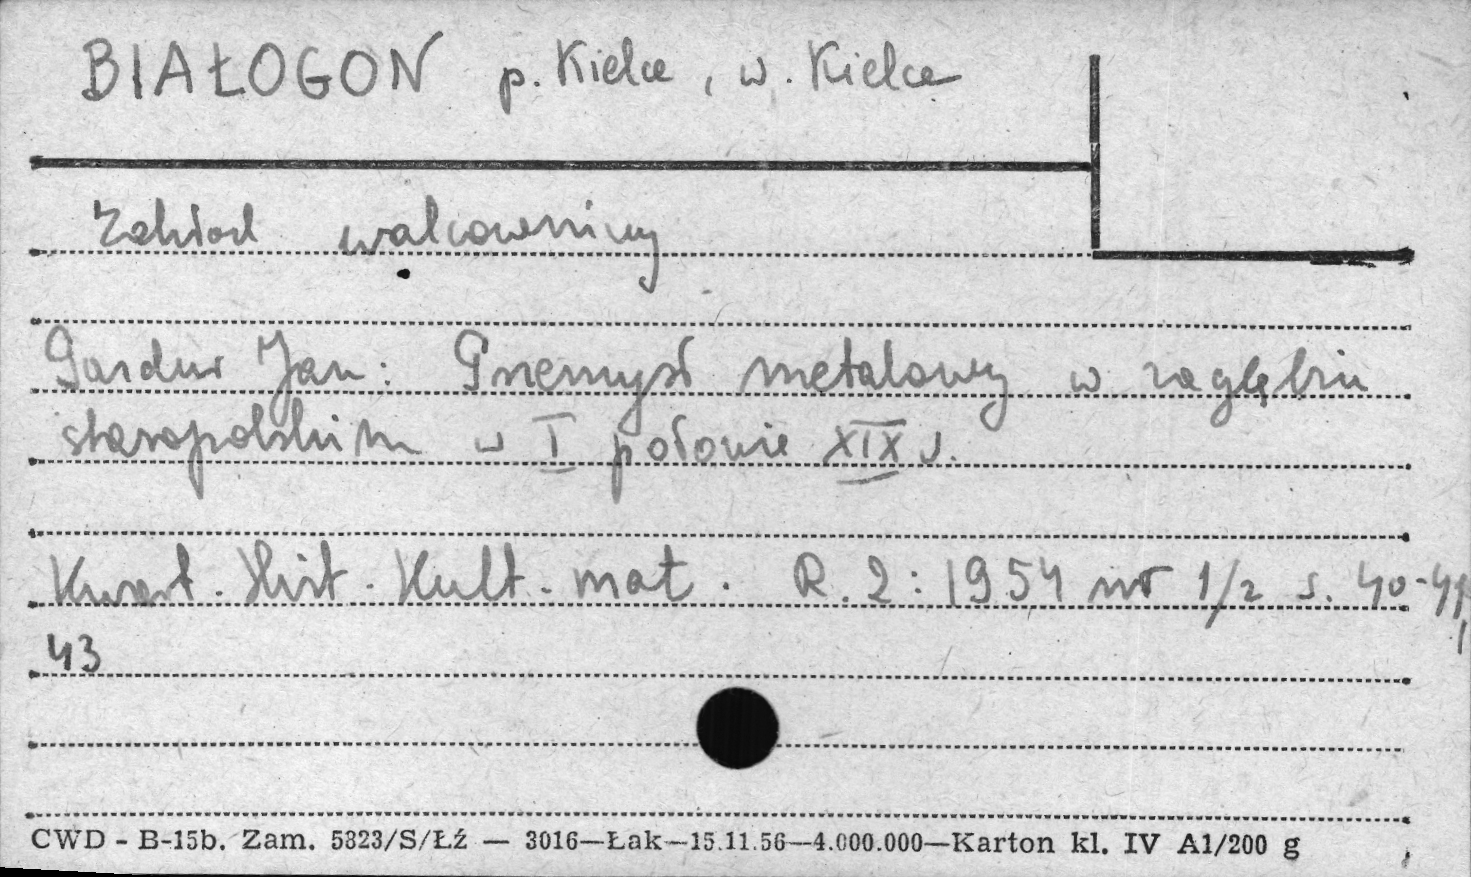 BIAŁOGON p. Kielce, w. Kielce
Zakład walcowniczy
Pazdur Jan: Przemysł metalowy w zagłębiu
staropolskim w I połowie XIX w.
Kwart. Hist. Kult. mat. R. 2: 1954 nr 1/2 s. 40-41,
43
CWD - B-15b. Zam. 5323/S/Łź — 3016—Łak—15.11.56—4.000.000—Karton kl. IV A1/200 g